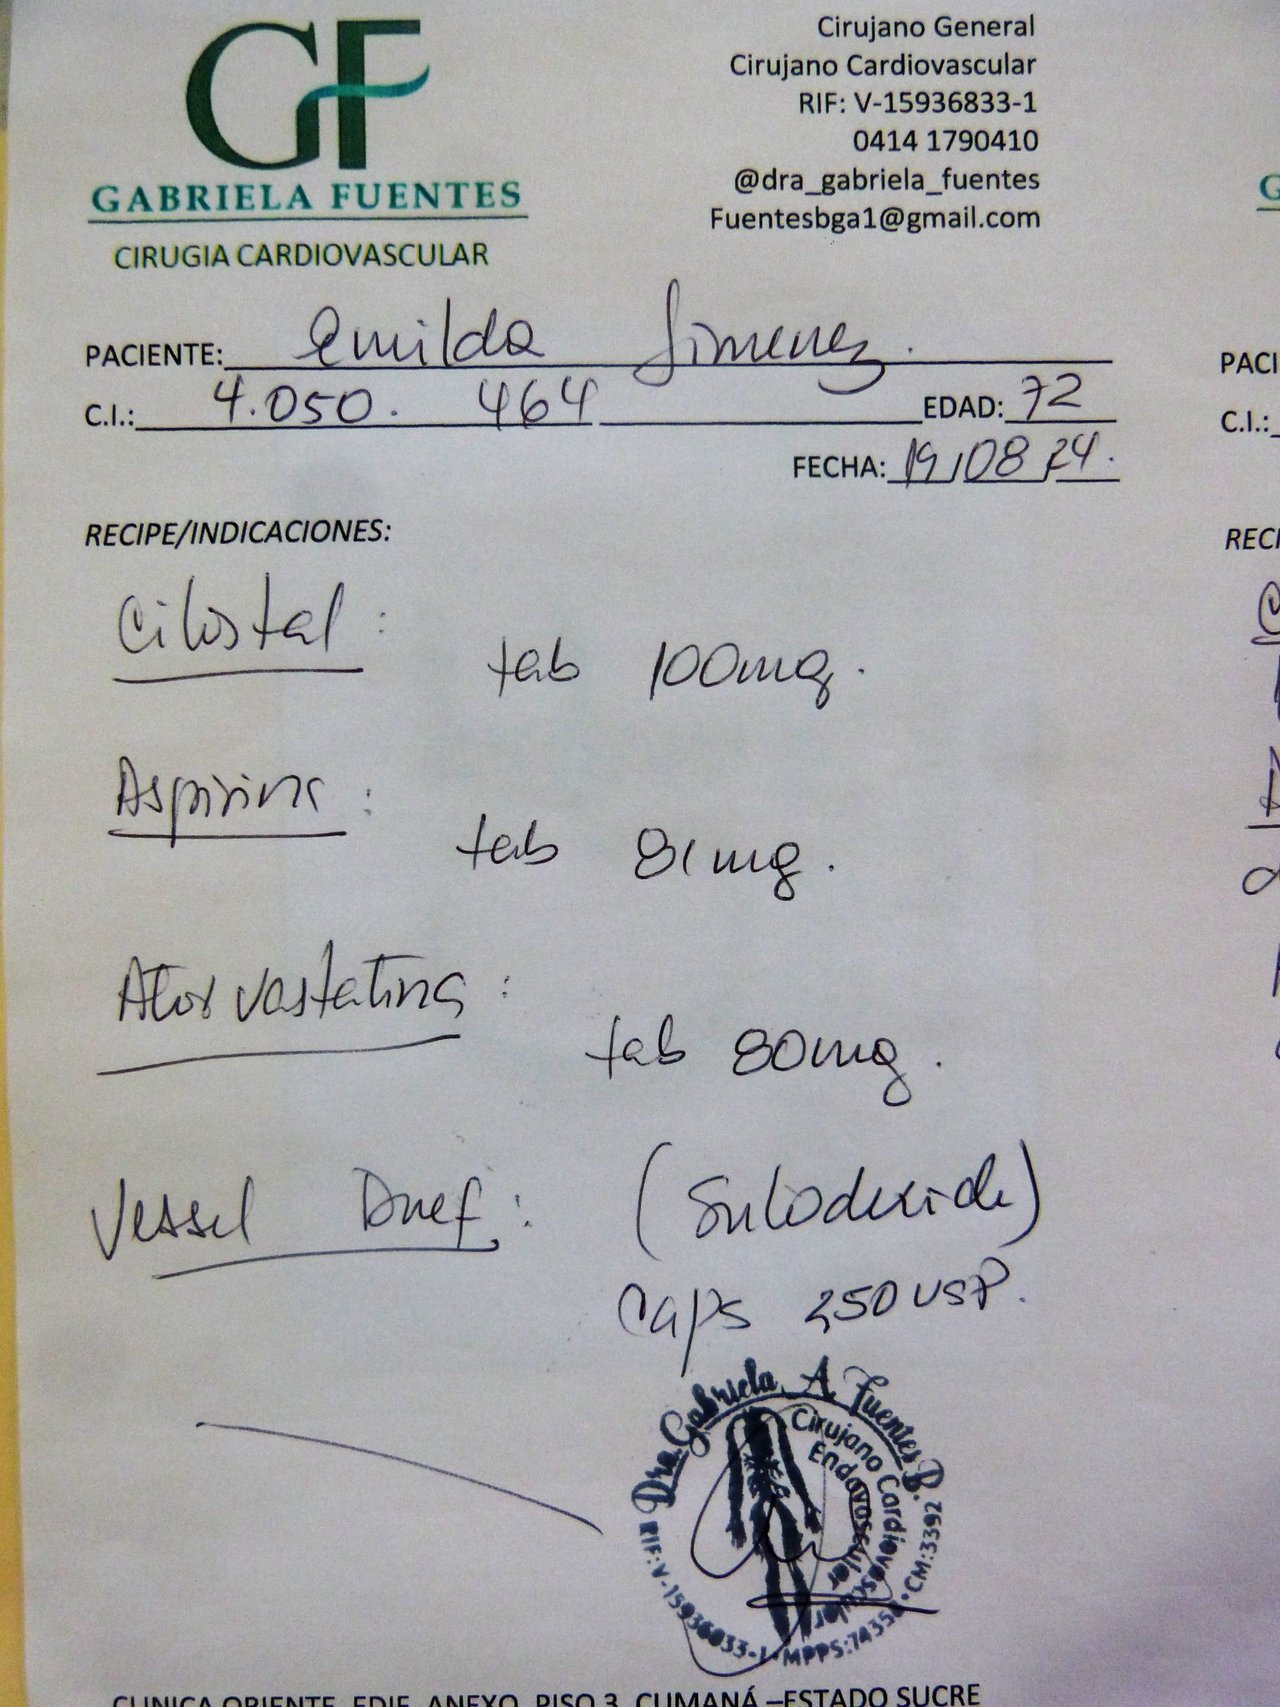 GF
GABRIELA FUENTES
CIRUGIA CARDIOVASCULAR
Cirujano General
Cirujano Cardiovascular
RIF: V-15936833-1
0414 1790410
@dra_gabriela_fuentes
Fuentesbga1@gmail.com
PACIENTE: Emilda Jimenez.
C.I.: 4.050.464 EDAD: 72
FECHA: 19/08/24.
RECIPE/INDICACIONES:
Cilostal:
tab 100mg.
Aspirina:
tab 81mg.
Atorvastatina:
tab 80mg.
Vessel Duef: (Sulodexide)
Caps 250 USP.
Dra. Gabriela A. Fuentes B.
Cirujano Cardiovascular
Endovascular
RIF: V-15936833-1 · MPPS: CM:3392
CLINICA ORIENTE, EDIF. ANEXO, PISO 3, CUMANÁ –ESTADO SUCRE
G
PACI
C.I.:
RECI